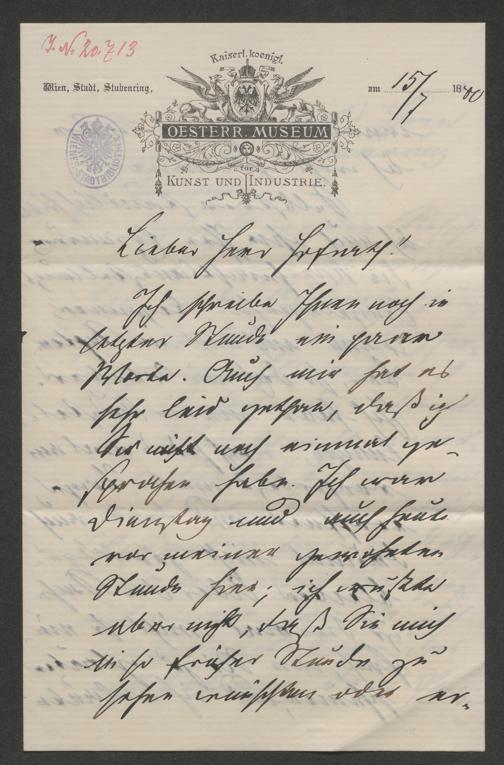 J. N. 20.713
Kaiserl. koenigl.
Wien, Stadt, Stubenring,
am 15/7 1880
OESTERR. MUSEUM
für
KUNST UND INDUSTRIE.
Lieber Herr Hofrath!
Ich schreibe Ihnen noch in
letzter Stunde ein paar
Worte. Auch mir hat es
sehr leid gethan, daß ich
Sie nicht noch einmal ge-
sprochen habe. Ich war
Dienstag und auch heute
vor meiner gewohnten
Stunde hier; ich wußte
aber nicht, daß Sie mich
in so früher Stunde zu
sehen wünschten oder er-